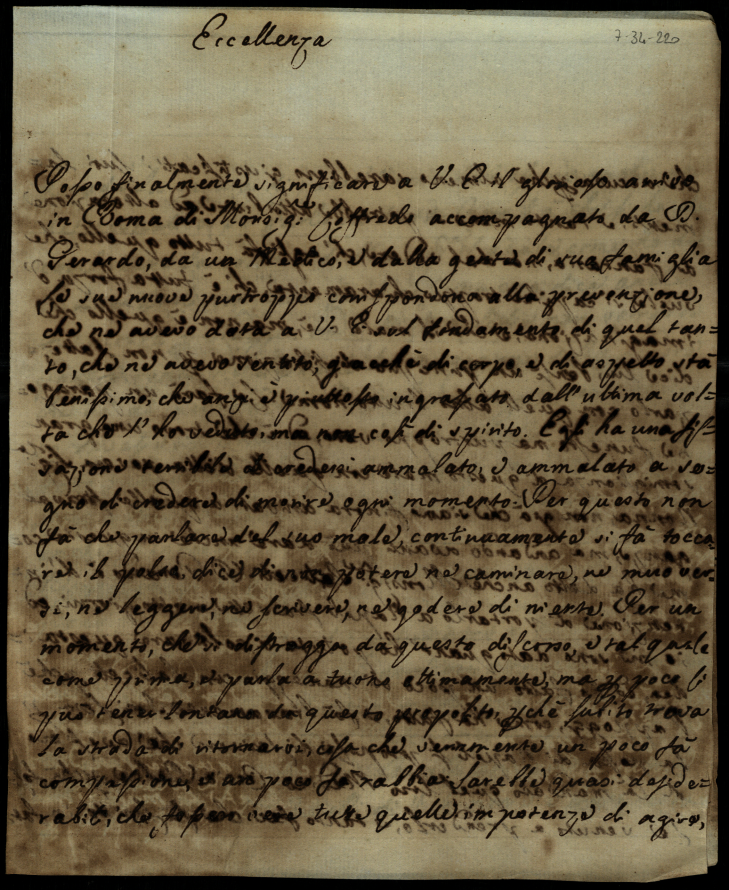 Eccellenza
7-34-220
Posso finalmente significare a V. E. il arrivo
in Roma di Monsig. accompagnato da D.
Gerardo, da un Medico, e dalla gente di sua famiglia
Le sue nuove purtroppo corrispondono alla prevenzione,
che ne avevo data a V. E. sul fondamento di quel tan=
to, che ne avevo sentito, di corpo, e di aspetto stà
benissimo, che anzi è piuttosto ingrassato dall'ultima vol=
ta che l'ho veduto, ma non così di spirito. Egli ha una fis=
sazione terribile di credersi ammalato, e ammalato a se=
gno di credere di morire ogni momento. Per questo non
fà che parlare del suo male, continuamente si fà tocca=
re il polso, dice di non potere ne caminare, ne muover=
si, ne leggere, ne scrivere, ne godere di niente. Per un
momento, che si distragga da questo discorso, è tal quale
come prima, e parla a tuono ottimamente, ma p poco si
può tener lontano da questo proposito, pchè subito trova
la strada di ritornarvi, cosa che veramente un poco fà
compassione, e un poco fa rabbia. Sarebbe quasi deside=
rabile, che fossero vere tutte quelle impotenze di agire,